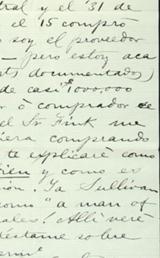 tral y el 31 de
el 15 compro
soy el proveedor
— pero estoy aca
documentados)
de casi 1000,000
r ó comprador de
el Sr Fink me
iera comprando
te explicaré como
bien y como es
ión. Ya Sullivan
como "a man of
ales! Alli veré
téstame sobre